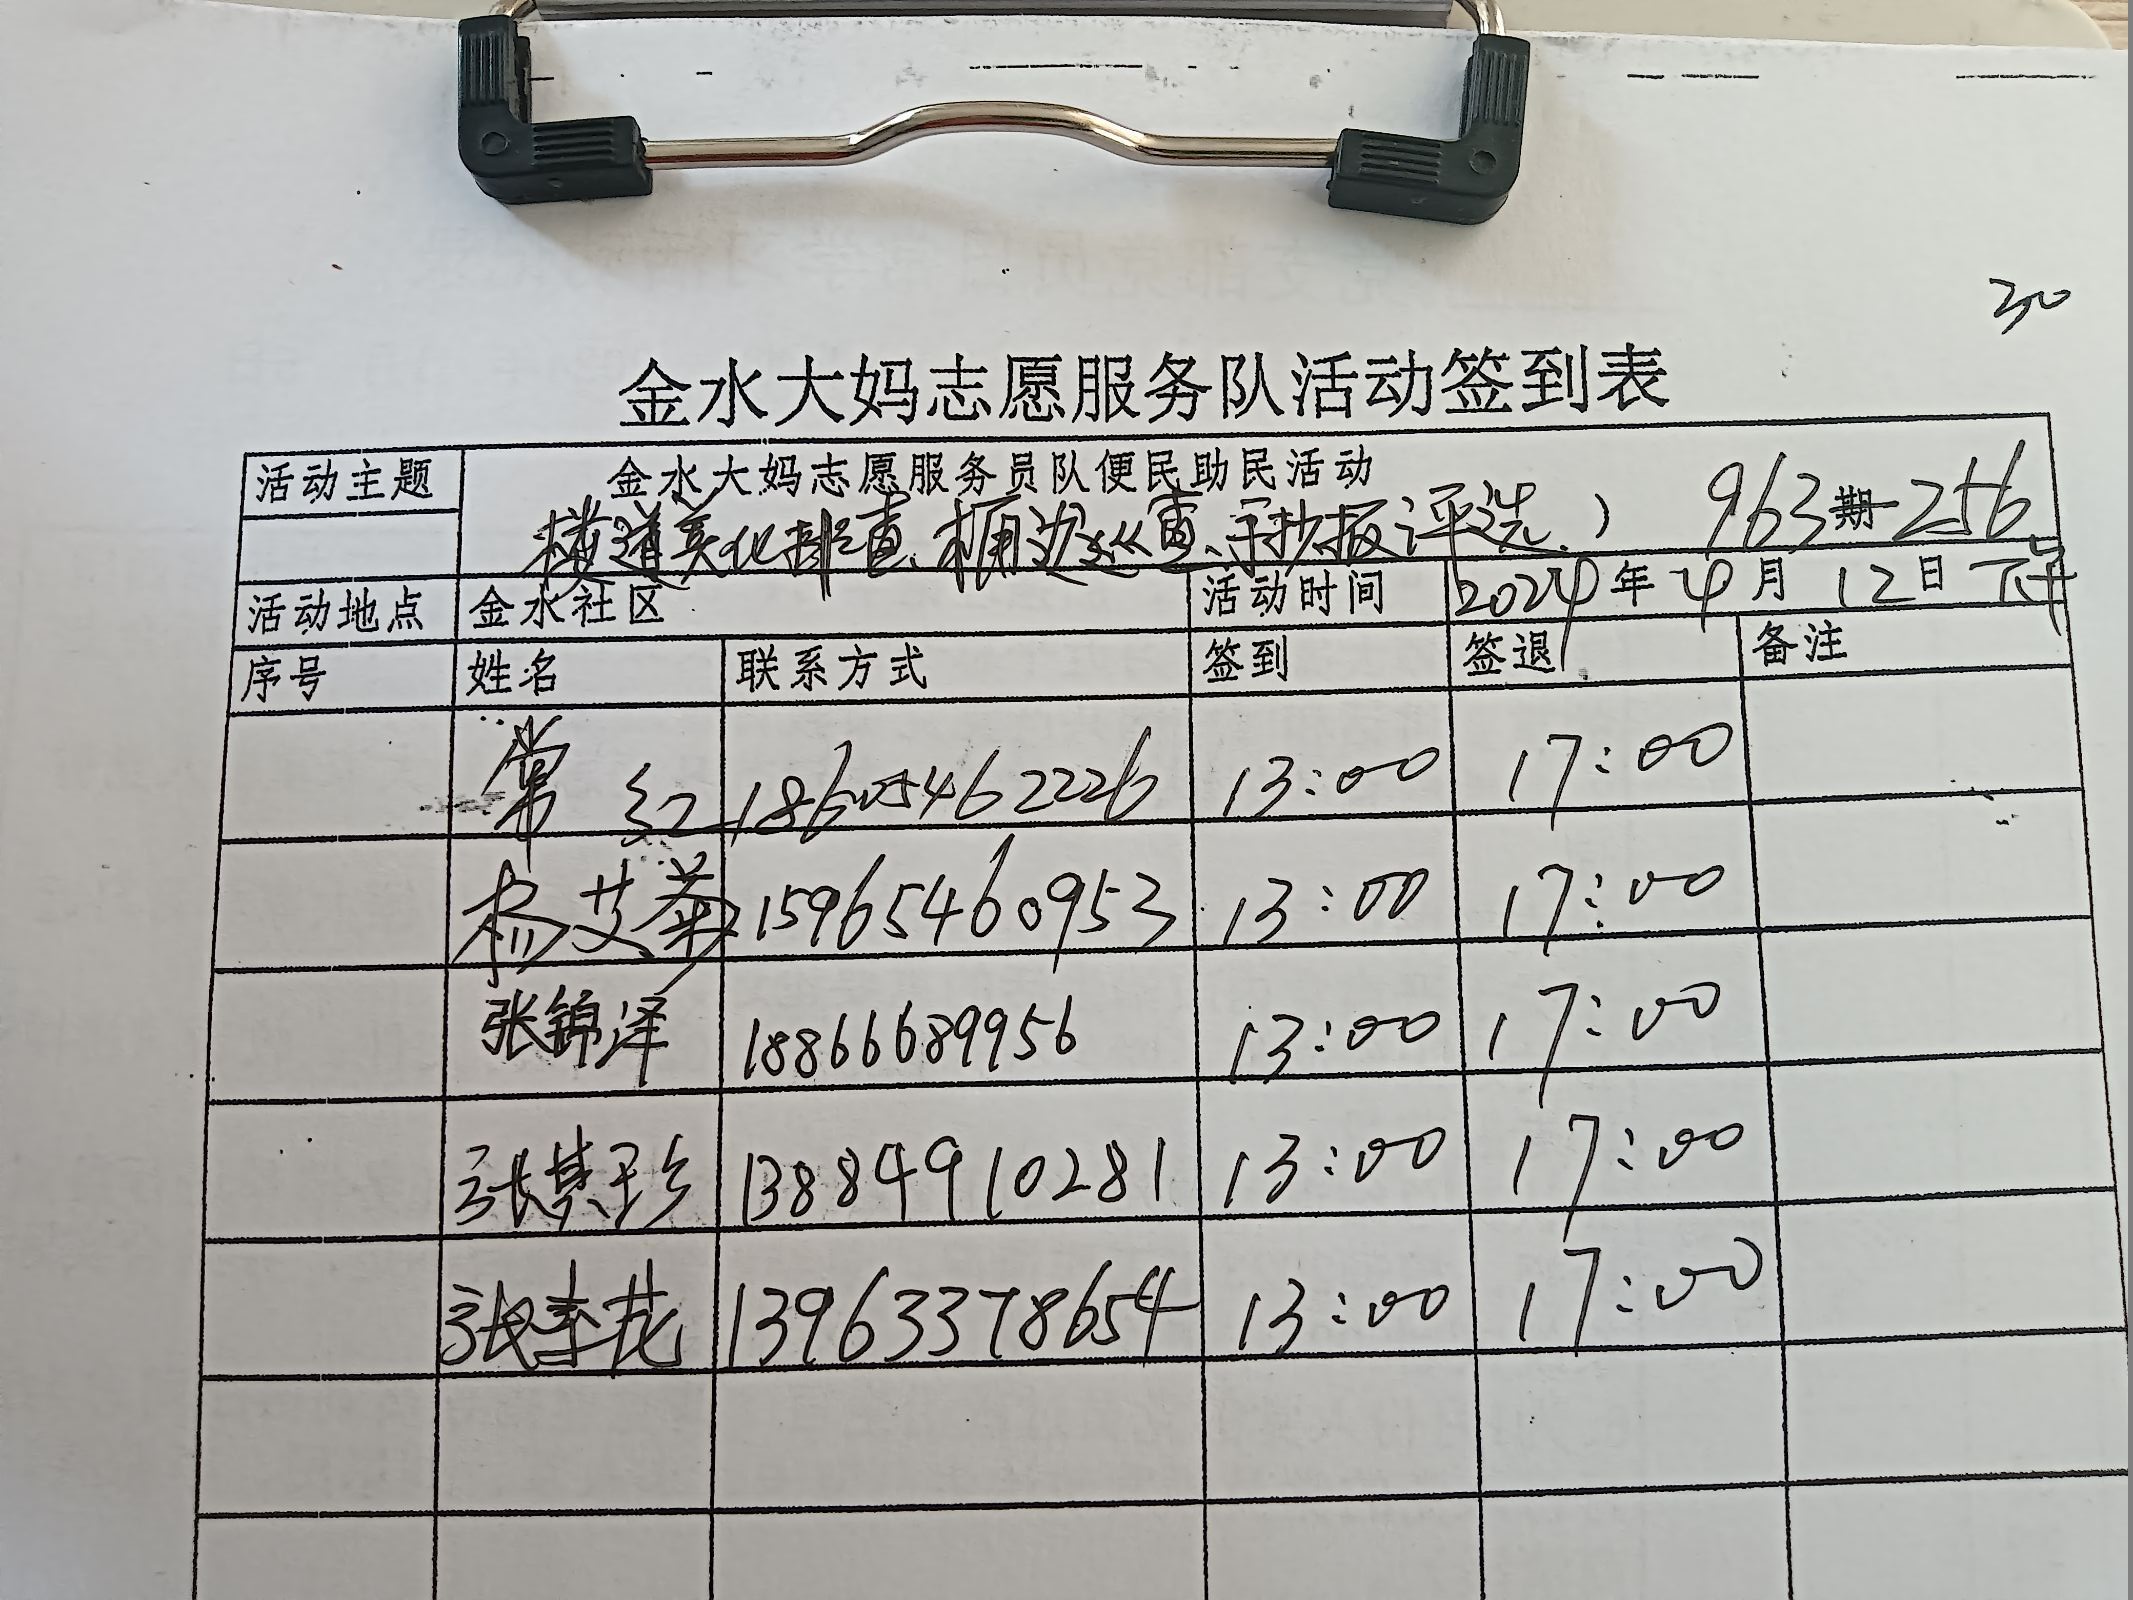 30
金水大妈志愿服务队活动签到表
活动主题 金水大妈志愿服务员队便民助民活动
楼道美化排查、桶边巡查、手抄报评选） 963期-256
活动地点 金水社区 活动时间 2024年4月12日下午
序号 姓名 联系方式 签到 签退 备注
常红 18605462226 13:00 17:00
杨艾菊 15965460953 13:00 17:00
张锦泽 18866689956 13:00 17:00
张其珍 13884910281 13:00 17:00
张李花 13963378654 13:00 17:00